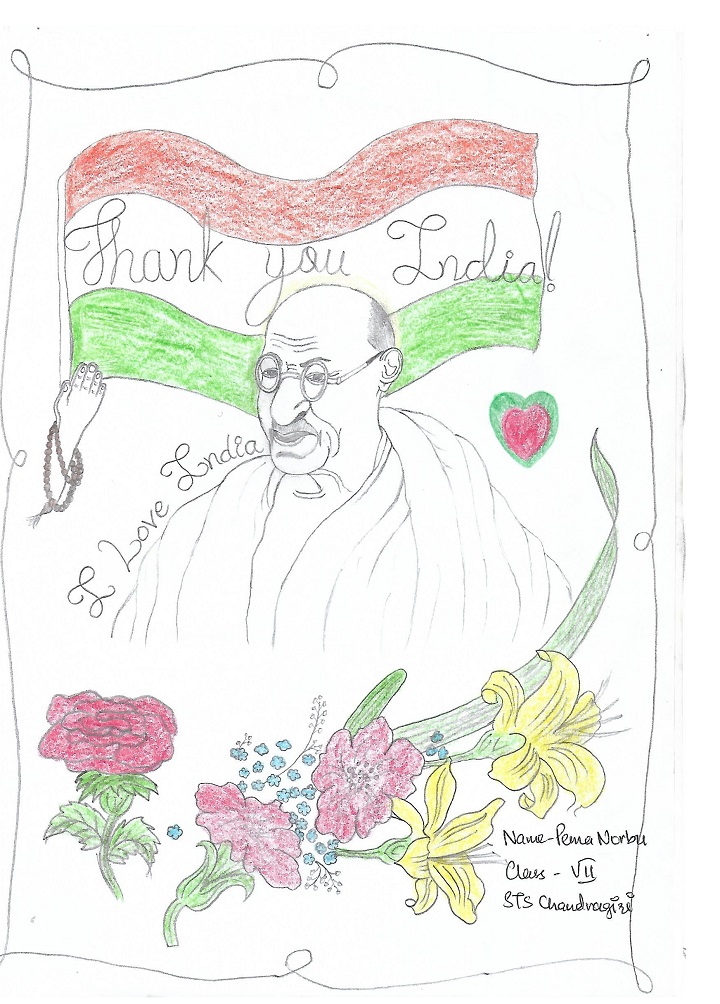 Thank you India!
I Love India
Name - Pema Norbu
Class - VII
STS Chandragiri